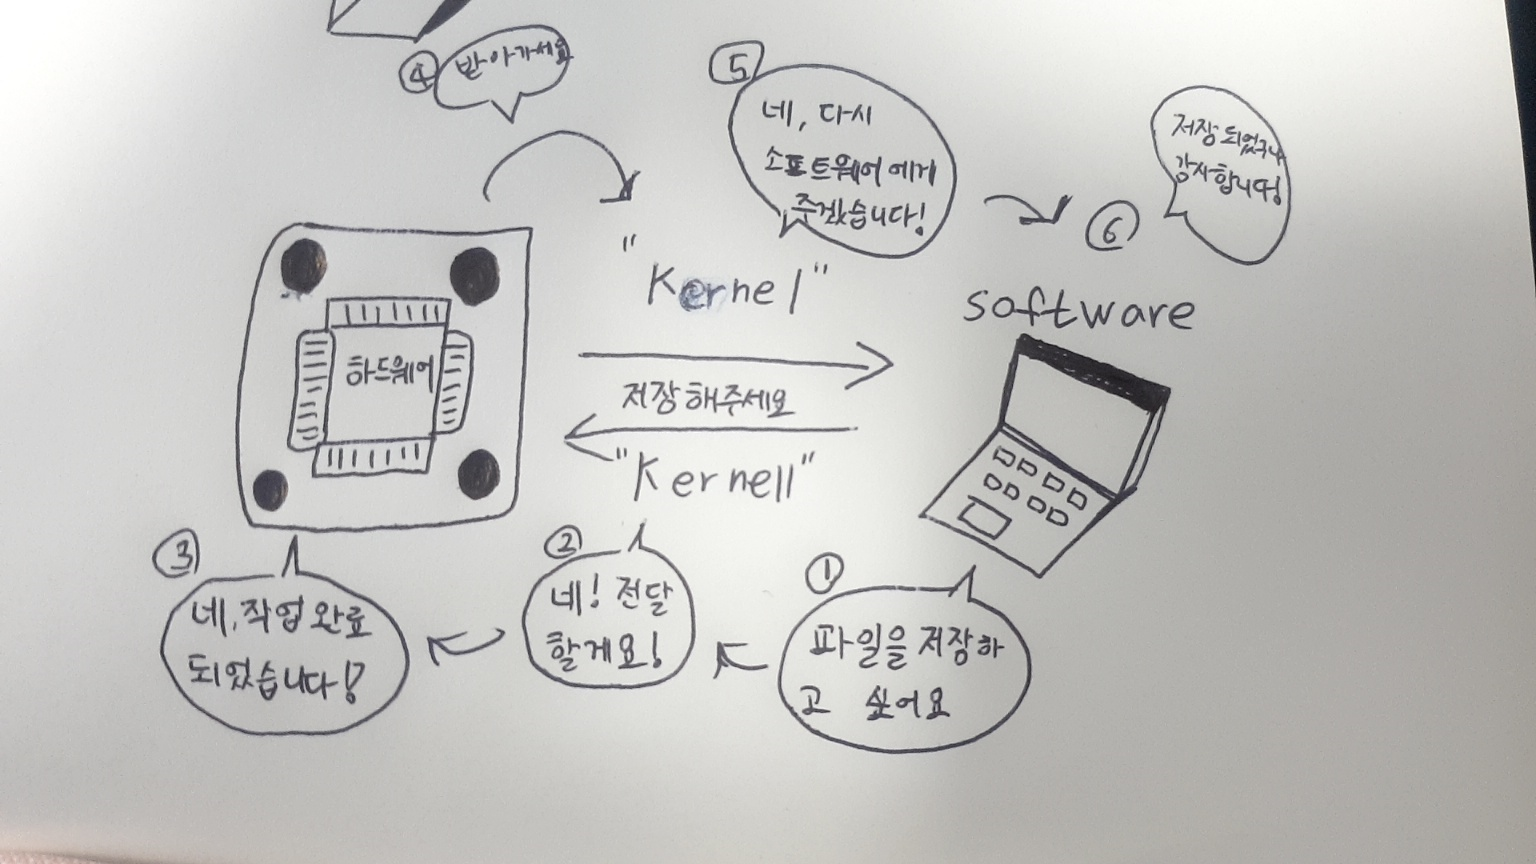 ④ 받아가세요
⑤
네, 다시
소프트웨어에게
주겠습니다!
⑥
저장 되었구나
감사합니다!
"Kernel"
software
하드웨어
저장해주세요
"Kernell"
③
네, 작업 완료
되었습니다!
②
네! 전달
할게요!
①
파일을 저장하
고 싶어요